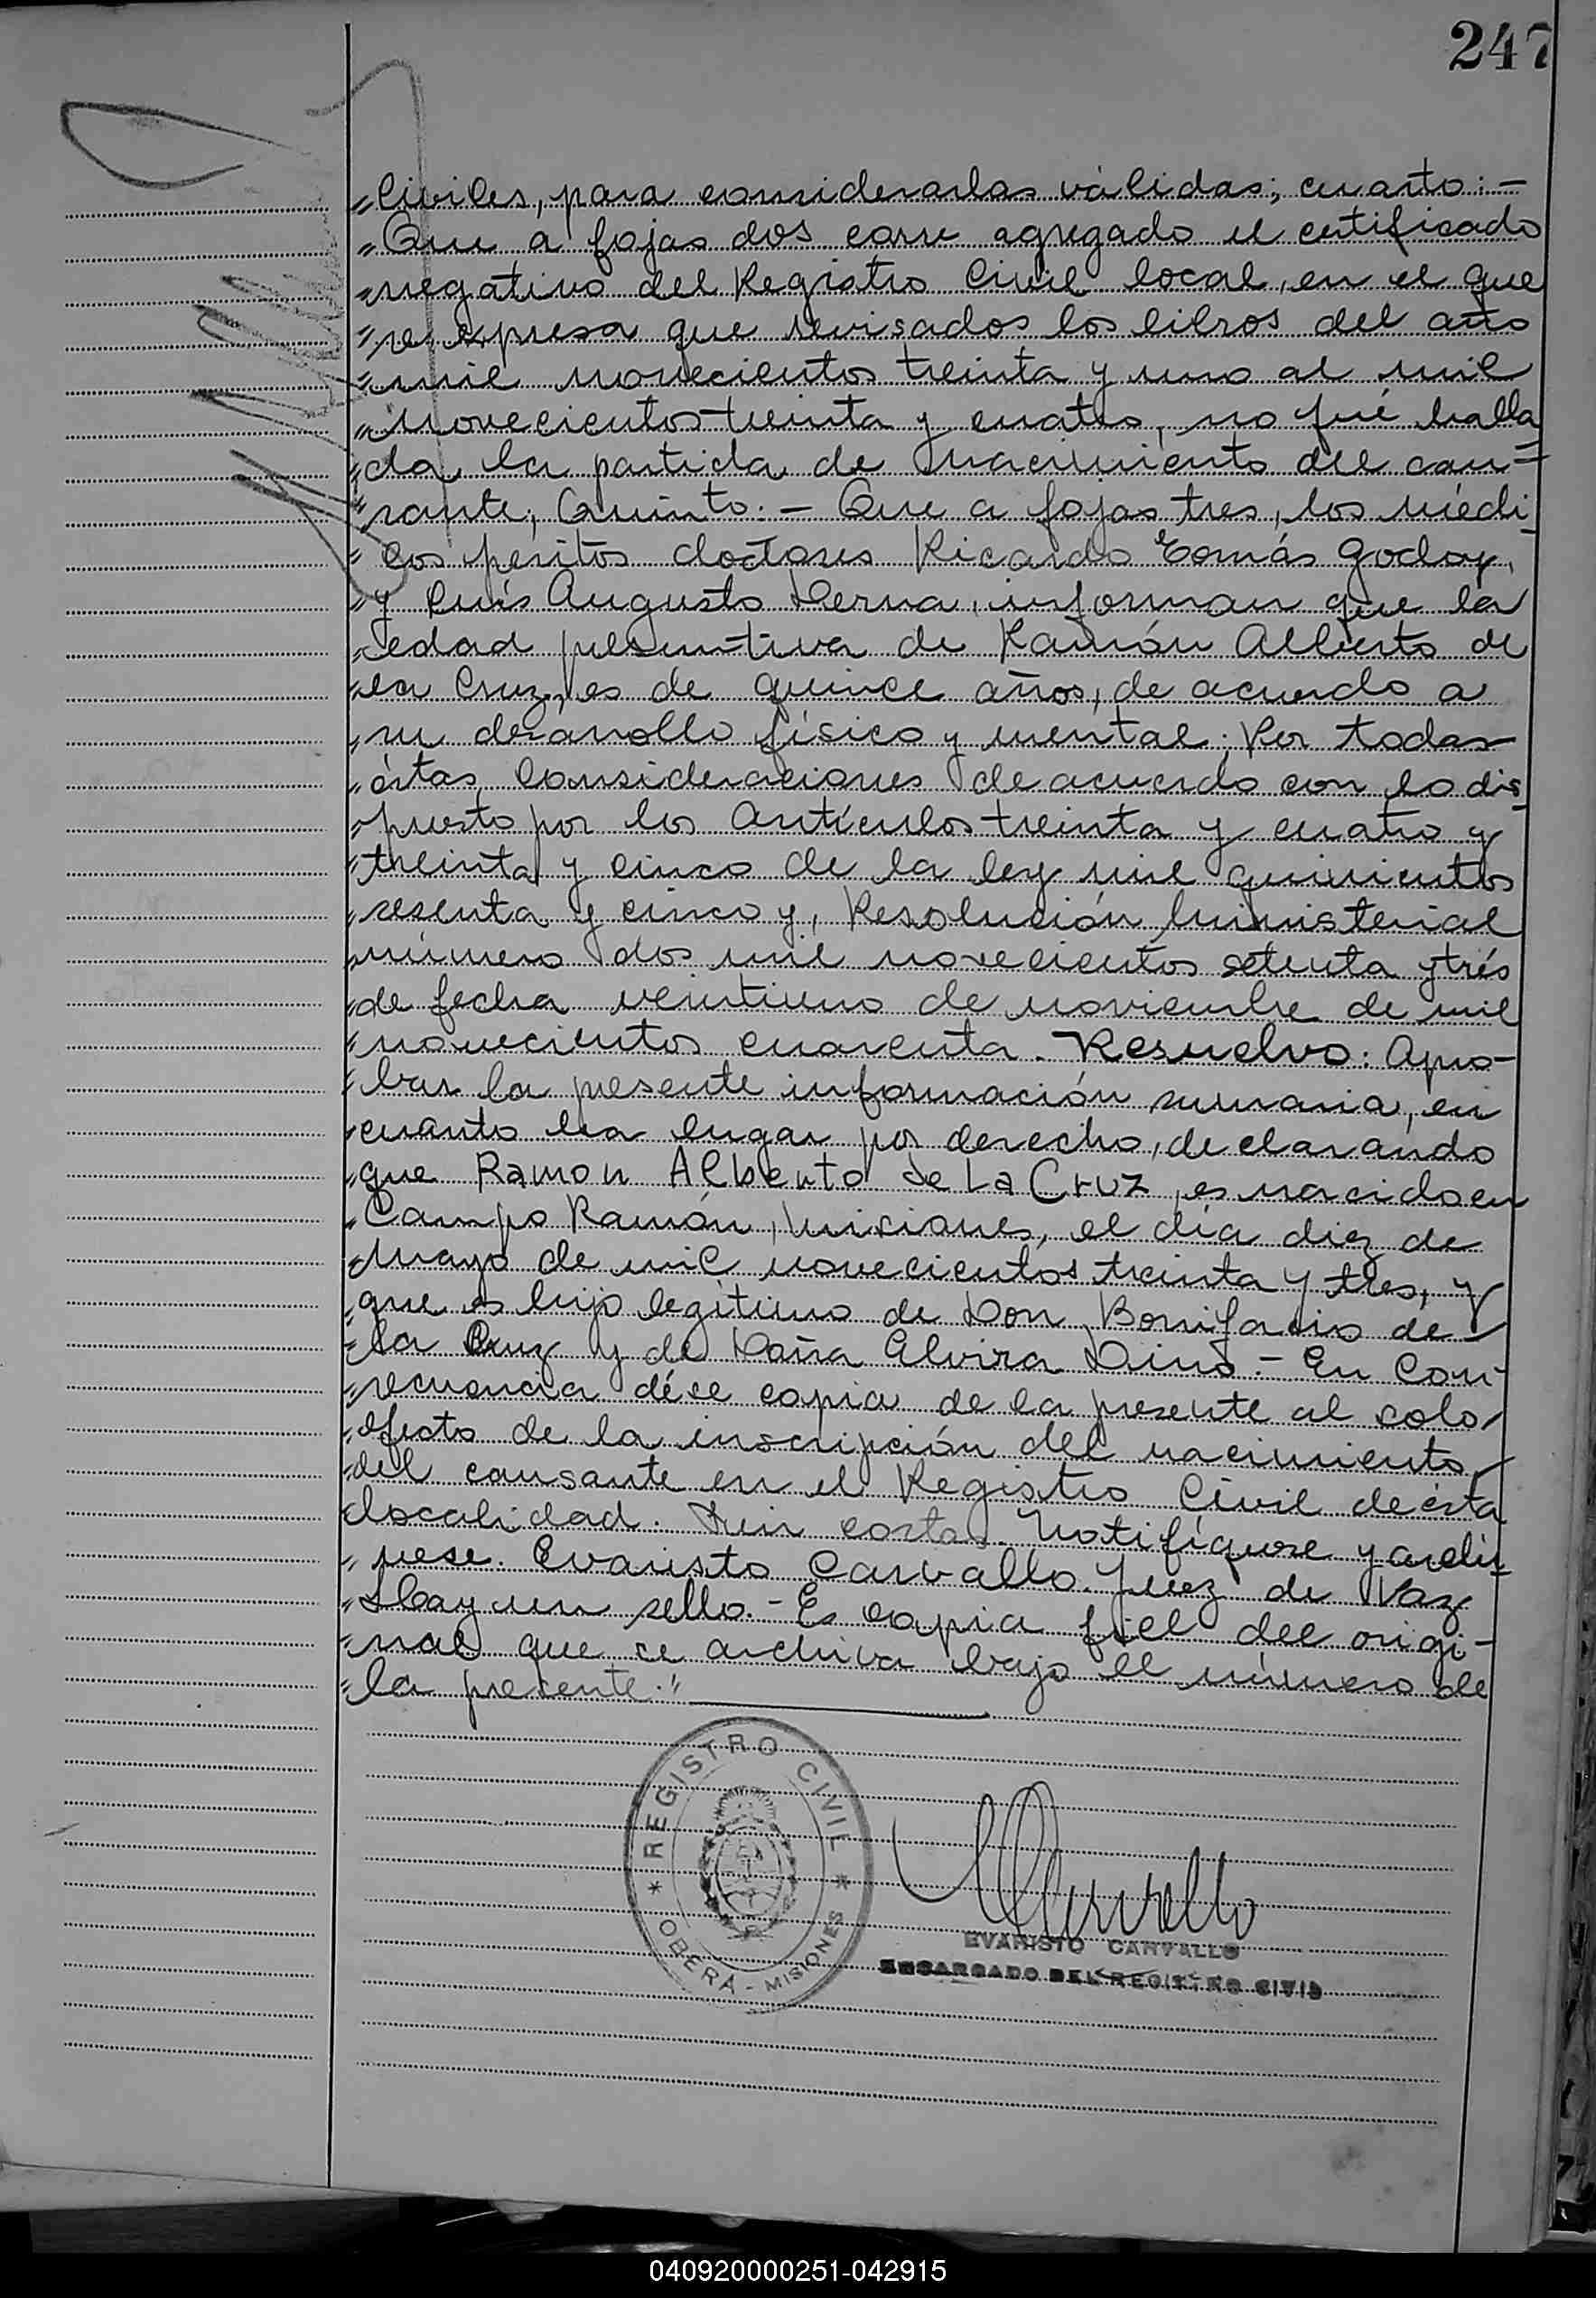 247
"Civiles, para considerarlas válidas; cuarto:-
"Que a fojas dos corre agregado el certificado
"negativo del Registro Civil local, en el que
"se expresa que revisados los libros del año
"mil novecientos treinta y uno al mil
"novecientos treinta y cuatro, no fué halla
"da la partida de nacimiento del cau-
"sante; Quinto:- Que a fojas tres, los médi-
"cos peritos doctores Ricardo Tomás Godoy,
"y Luis Augusto Derna, informan que la
"edad presuntiva de Ramón Alberto de
"la Cruz, es de quince años, de acuerdo a
"su desarrollo físico y mental; Por todas
"éstas consideraciones de acuerdo con lo dis-
"puesto por los Artículos treinta y cuatro y
"treinta y cinco de la ley mil quinientos
"sesenta y cinco y, Resolución Ministerial
"número dos mil novecientos setenta y trés
"de fecha veintiuno de noviembre de mil
"novecientos cuarenta. Resuelvo: Apro-
"bar la presente información sumaria, en
"cuanto ha lugar por derecho, declarando
"que Ramon Alberto de La Cruz, es nacido en
"Campo Ramón, Misiones, el día diez de
"Mayo de mil novecientos treinta y tres, y
"que es hijo legítimo de Don Bonifacio de
"la Cruz y de Doña Elvira Dino.- En Con-
"secuencia dése copia de la presente al solo
"efecto de la inscripción del nacimiento
"del causante en el Registro Civil de ésta
"localidad. Sin costas. Notifíquese y archí-
"vese. Evaristo Carvallo. Juez de Paz
"Hay un sello.- Es copia fiel del origi-
"nal que se archiva bajo el número de
"la presente."
REGISTRO CIVIL
OBERÁ - MISIONES
EVARISTO CARVALLO
ENCARGADO DEL REGISTRO CIVIL
040920000251-042915